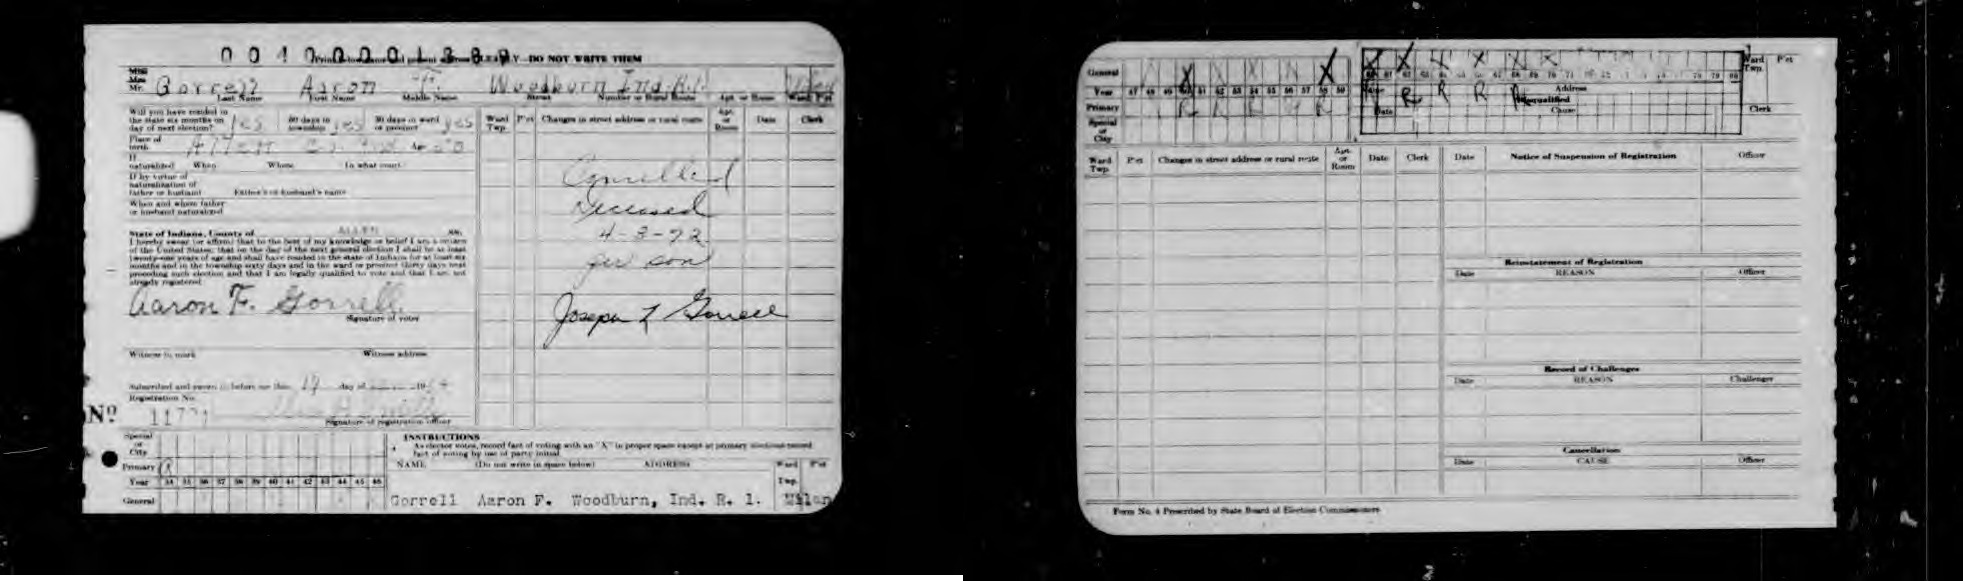 PLAINLY—DO NOT WRITE THEM
Miss
Mrs.
Mr. Gorrell Aaron F. Woodburn Ind. R.1
Last Name First Name Middle Name Street Number or Rural Route Apt. or Room Ward P'ct
Will you have resided in the state six months on day of next election? yes 60 days in township yes 30 days in ward or precinct yes
Place of birth Allen Co. Ind. Age
If naturalized When Where In what court
If by virtue of naturalization of father or husband Father's or husband's name
When and where father or husband naturalized
State of Indiana, County of ALLEN ss.
I hereby swear (or affirm) that to the best of my knowledge or belief I am a citizen
of the United States; that on the day of the next general election I shall be at least
twenty-one years of age and shall have resided in the state of Indiana for at least six
months and in the township sixty days and in the ward or precinct thirty days next
preceding such election and that I am legally qualified to vote and that I am not
already registered.
Aaron F. Gorrell
Signature of voter
Witness to mark Witness address
Subscribed and sworn to before me this 17 day of
Registration No.
No 11771
Signature of registration officer
Ward Twp. P'ct Changes in street address or rural route Apt. or Room Date Clerk
Cancelled
Deceased
4-3-72
per son
Joseph L Gorrell
Special or City
Primary R
Year 34 35 36 37 38 39 40 41 42 43 44 45 46
General
INSTRUCTIONS
As elector votes, record fact of voting with an "X" in proper space except at primary elections record
fact of voting by use of party initial.
NAME (Do not write in space below) ADDRESS Ward Twp. P'ct
Gorrell Aaron F. Woodburn, Ind. R. 1. Milan
General X X
Year 47 48 49 50 51 52 53 54 55 56 57 58 59
Primary R R R R R
Special or City
Address
Date Disqualified Cause Clerk
Ward Twp. P'ct
Ward Twp. P'ct Changes in street address or rural route Apt. or Room Date Clerk
Date Notice of Suspension of Registration Officer
Reinstatement of Registration
Date REASON Officer
Record of Challenges
Date REASON Challenger
Cancellation
Date CAUSE Officer
Form No. 4 Prescribed by State Board of Election Commissioners